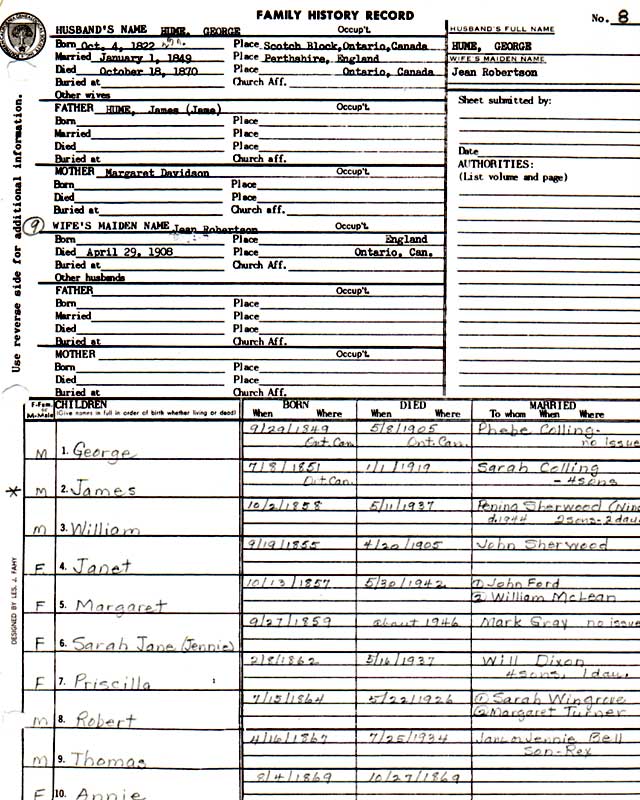 FAMILY HISTORY RECORD
No. 8
HUSBAND'S NAME HUME, GEORGE Occup'l.
Born Oct. 4, 1822 Place Scotch Block, Ontario, Canada
Married January 1, 1849 Place Perthshire, England
Died October 18, 1870 Place Ontario, Canada
Buried at Church Aff.
Other wives
FATHER HUME, James (Jame) Occup'l.
Born Place
Married Place
Died Place
Buried at Church aff.
MOTHER Margaret Davidson Occup'l.
Born Place
Died Place
Buried at Church aff.
9 WIFE'S MAIDEN NAME Jean Robertson Occup'l.
Born Place England
Died April 29, 1908 Place Ontario, Can.
Buried at Church Aff.
Other husbands
FATHER Occup'l.
Born Place
Married Place
Died Place
Buried at Church Aff.
MOTHER Occup'l.
Born Place
Died Place
Buried at Church Aff.
HUSBAND'S FULL NAME
HUME, GEORGE
WIFE'S MAIDEN NAME
Jean Robertson
Sheet submitted by:
Date
AUTHORITIES:
(List volume and page)
Use reverse side for additional information.
F-Fem. or M-Male CHILDREN BORN DIED MARRIED
(Give names in full in order of birth whether living or dead) When Where When Where To whom When Where
9/29/1849 5/8/1905 Phebe Colling-
Ont. Can. Ont. Can. no issue
M 1. George
7/8/1851 1/1/1919 Sarah Colling
Ont Can. - 4 sons
* M 2. James
10/2/1858 5/11/1937 Penina Sherwood
d. 1944 2 sons-2 daus
M 3. William
9/19/1855 4/20/1905 John Sherwood
F 4. Janet
10/13/1857 5/30/1942 ① John Ford
② William McLean
F 5. Margaret
9/27/1859 about 1946 Mark Gray no issue
F 6. Sarah Jane (Jennie)
2/8/1862 5/16/1937 Will Dixon
4 sons, 1 dau.
F 7. Priscilla
7/15/1864 5/22/1926 ① Sarah Wingrove
② Margaret Turner
M 8. Robert
4/16/1867 7/25/1934 Jennie Bell
Son-Rex
M 9. Thomas
8/4/1869 10/27/1869
F 10. Annie
DESIGNED BY LES. J. FAHY